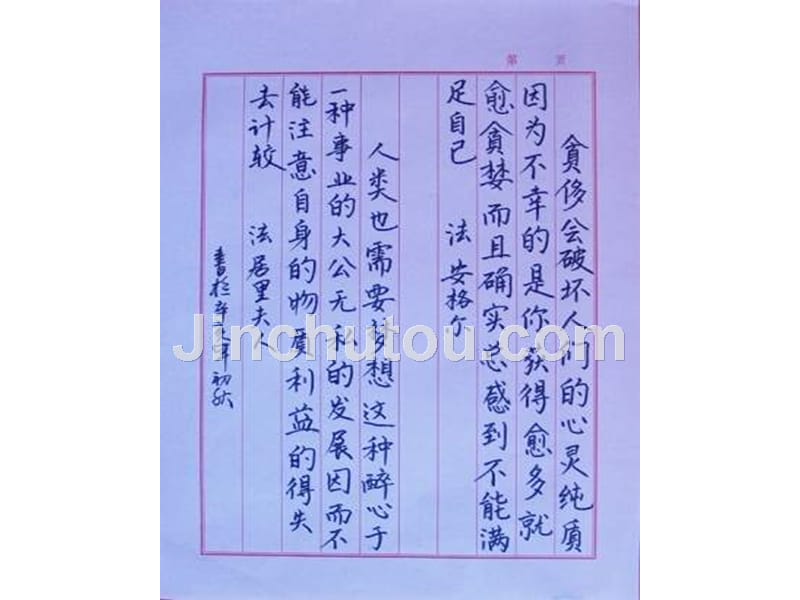 第 页
贪侈会破坏人们的心灵纯质
因为不幸的是你获得愈多就
愈贪婪而且确实总感到不能满
足自己 法 安格尔
人类也需要梦想这种醉心于
一种事业的大公无私的发展因而不
能注意自身的物质利益的得失
去计较 法 居里夫人
书于辛亥年初秋
Jinchutou.com